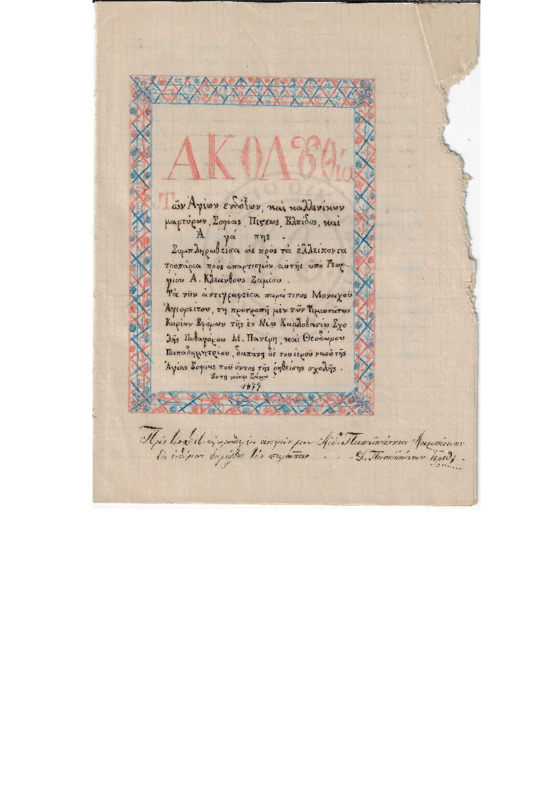 ΑΚΟΛȣθία
Τῶν Ἁγίων ἐνδόξων, καὶ καλλινίκων
μαρτύρων, Σοφίας Πίστεως, Ἐλπίδος, καὶ
Ἀγάπης.
Συμπληρωθεῖσα ὡς πρὸς τὰ ἐλλείποντα
τροπάρια πρὸς ἀπαρτισμὸν αὐτῆς ὑπὸ Γεωρ-
γίου Α. Κλεάνθους Σαμίου.
Τὰ νῦν ἀντιγραφεῖσα παρά τινος Μοναχοῦ
Ἁγιορείτου, τῇ προτροπῇ μὲν τῶν Τιμιωτάτων
Κυρίων Ἐφόρων τῆς ἐν Νέῳ Καρλοβασίῳ Σχο-
λῆς Πυθαγόρου Μ. Πανέρη, καὶ Θεοδώρου
Παπαδημητρίου, δαπάνῃ δὲ τοῦ ἱεροῦ ναοῦ τῆς
Ἁγίας Σοφίας τοῦ ὄντος τῆς ῥηθείσης σχολῆς.
Ἐν τῇ νήσῳ Σάμῳ
1877